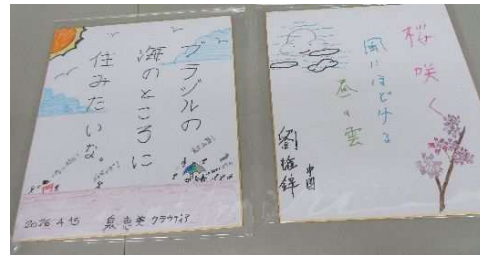 ブラジルの
海のところに
住みたいな。
2026 4.15 泉恵美クラウヂア
桜咲く
風にほどける
春の雲
中国
劉雄鋒